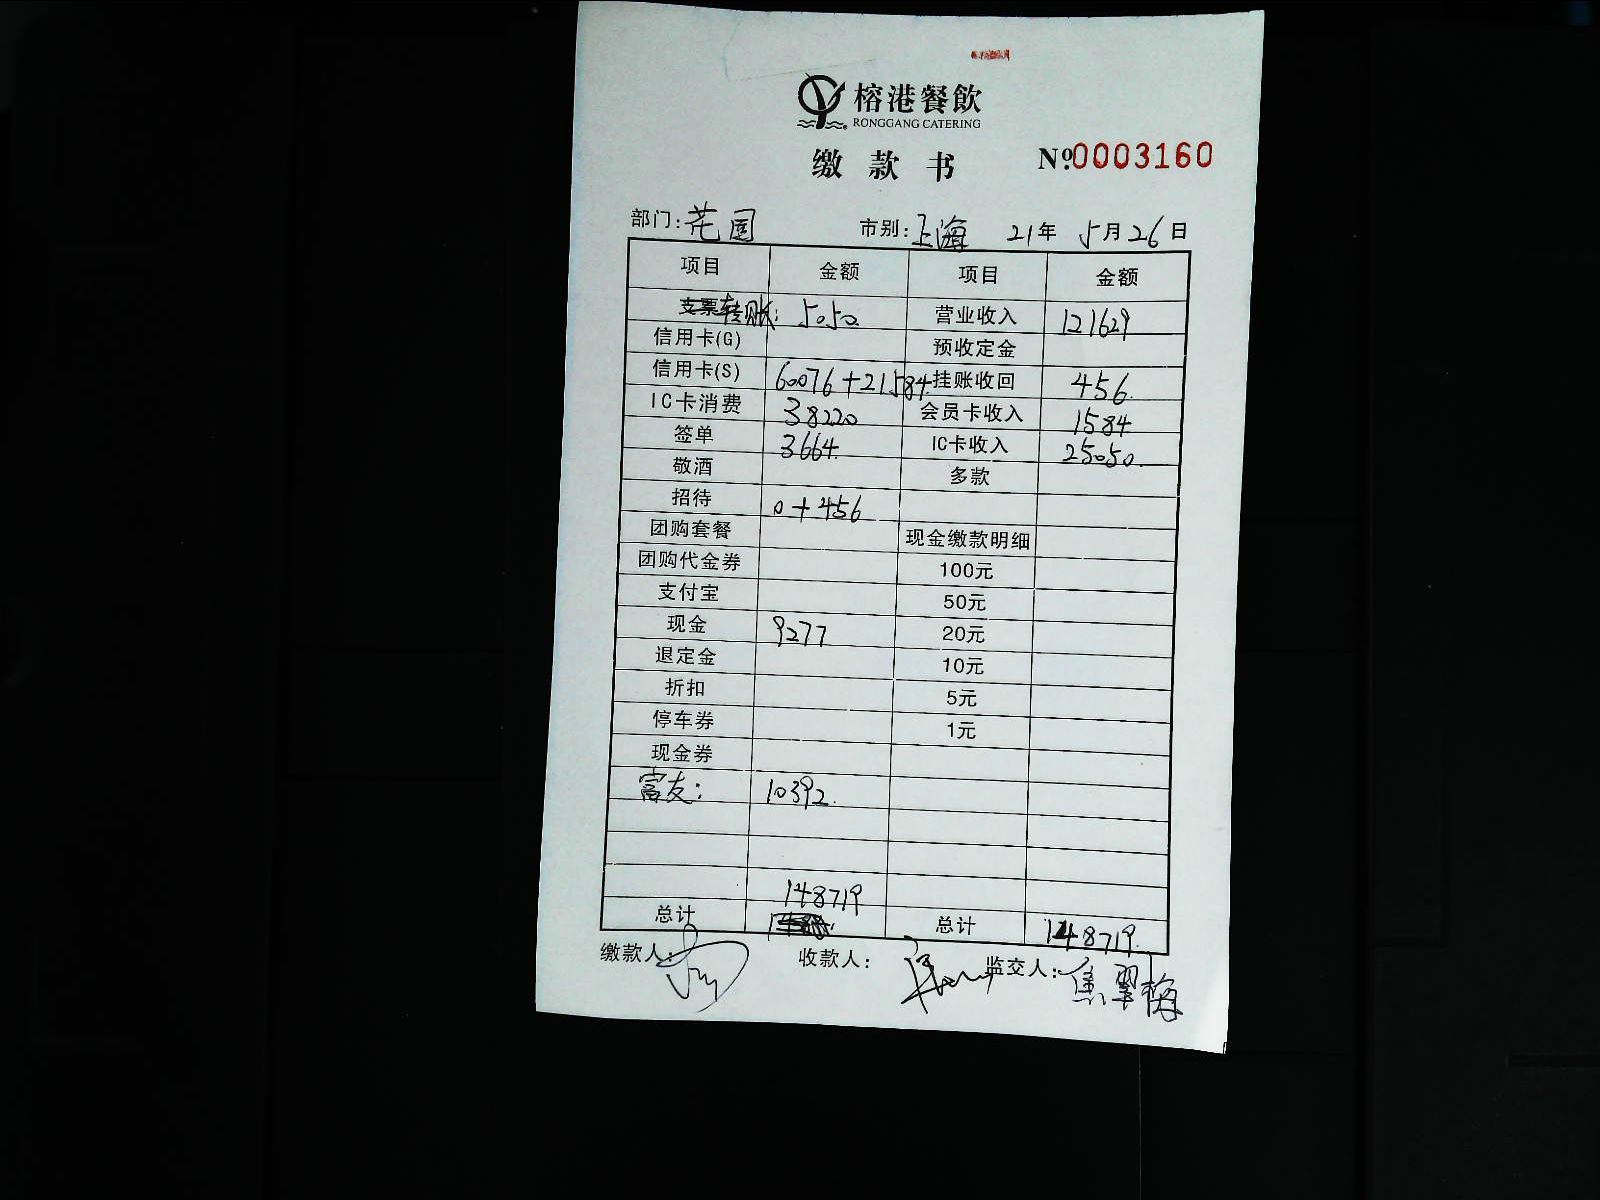 榕港餐飲
RONGGANG CATERING
缴款书 №0003160
部门:花园 市别:上海 21年 5月26日
项目 金额 项目 金额
支票转账: 5050 营业收入 121629
信用卡(G) 预收定金
信用卡(S) 60076+21584 挂账收回 456
IC卡消费 38220 会员卡收入 1584
签单 3664 IC卡收入 25050
敬酒 多款
招待 0+456
团购套餐 现金缴款明细
团购代金券 100元
支付宝 50元
现金 9277 20元
退定金 10元
折扣 5元
停车券 1元
现金券
富友: 10392
148719
总计 总计 148719
缴款人: 收款人: 监交人:焦翠梅